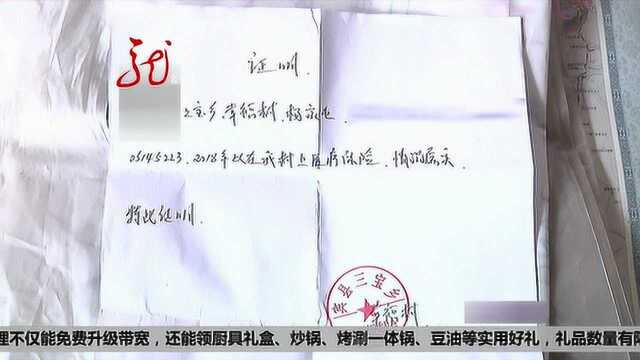 证明
宝乡幸福村
05145223.2018年以在我村上医疗保险.情况属实
特此证明.
县三宝乡
幸福村
理不仅能免费升级带宽，还能领厨具礼盒、炒锅、烤涮一体锅、豆油等实用好礼，礼品数量有